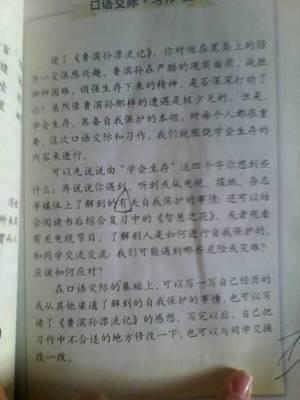 口语交际·习作
读了《鲁滨孙漂流记》，你对他在荒岛上的经
历一定很感兴趣。鲁滨孙在严酷的现实面前，战胜
种种困难，顽强生存下来的精神，是否深深打动了
你？虽然像鲁滨孙那样的遭遇是极少见的，但是，
学会生存、具备自我保护的本领，对每个人都很重
要。这次口语交际和习作，我们就围绕学会生存的
内容来进行。
可以先说说由“学会生存”这四个字你想到些
什么；再说说你遇到、听到或从电视、报纸、杂志
等媒体上了解到的有关自我保护的事情；还可以结
合阅读书后综合复习中的《智慧之花》，或者观看
有关电视节目，了解别人是如何进行自我保护的。
和同学交流交流：我们可能遇到哪些危险或灾难？
应该如何应对？
在口语交际的基础上，可以写一写自己经历的
或从其他渠道了解到的自我保护的事情，也可以写
读了《鲁滨孙漂流记》的感想。写完以后，自己把
习作中不合适的地方修改一下，也可以与同学交换
改一改。